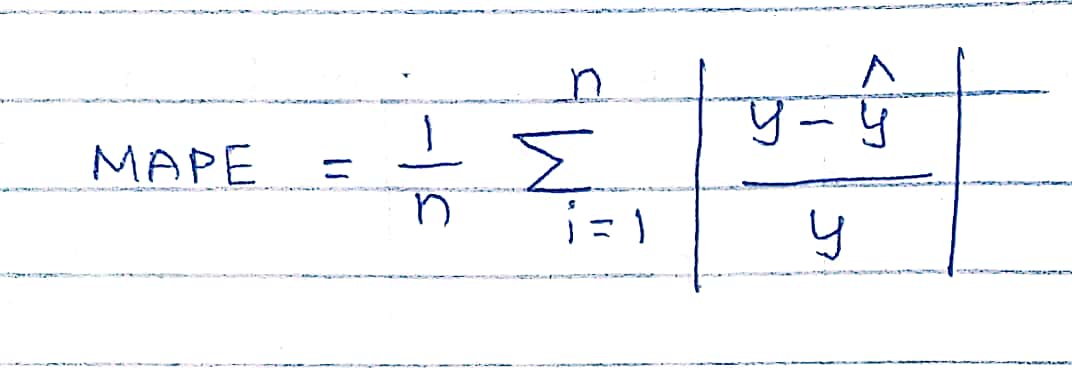 MAPE = \frac{1}{n} \sum_{i=1}^{n} \left| \frac{y - \hat{y}}{y} \right|